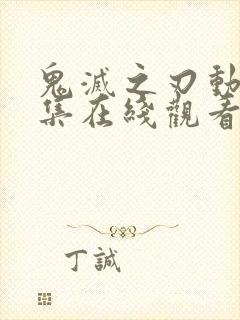 鬼滅之刃動
集在綫觀看
丁誠